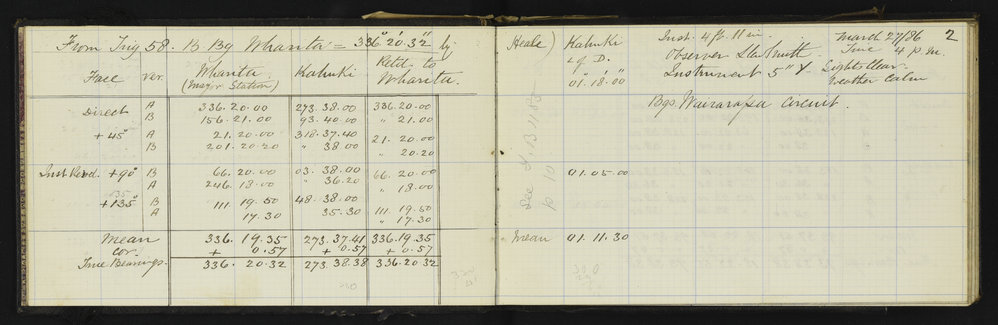 From Trig 58. B. Bg Wharita = 336° 20' 32" by Heale)
Face Ver. Wharita Kahuki Retd. to
(Major Station) Wharita.
Direct A 336.20.00 273.38.00 336.20.00
B 156.21.00 93.40.00 " 21.00
+45° A 21.20.00 318.37.40 21.20.00
B 201.20.20 " 38.00 " 20.20
Inst Revd. +90° B 66.20.00 03.38.00 66.20.00
A 246.18.00 " 36.20 " 18.00
135
+135° B 111.19.50 48.38.00 111.19.50
A 17.30 35.30 " 17.30
Mean 336.19.35 273.37.41 336.19.35
Cor. + 0.57 + 0.57 + 0.57
True Bearings. 336.20.32 273.38.38 336.20.32
Kahuki
∠ of D.
01° 18' 00"
01.05.00
Mean 01.11.30
See F.B 1185
p 10
Inst. 4ft. 11 in. March 27/86 2
Observer Time 4 p.m.
Instrument 5" Y Lights Clear
Weather Calm
Bgs Wairarapa Circuit.